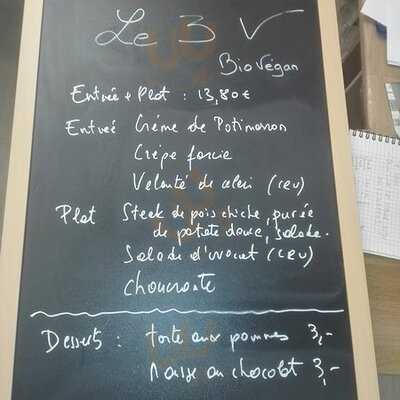 Le 3 V
Bio Végan
Entrée + Plat : 13,80€
Entreé Crème de Potimarron
Crêpe farcie
Velouté de céleri (cru)
Plat Steak de pois chiche, purée
de patate douce, salade.
Salade d'avocat (cru)
Choucroute
Desserts : tarte aux pommes 3,-
Mousse au chocolat 3,-